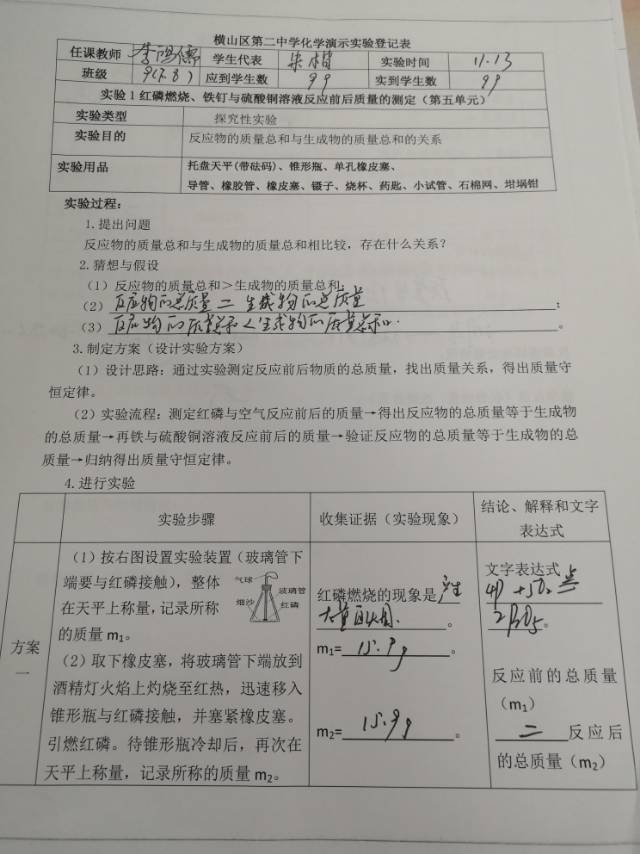 横山区第二中学化学演示实验登记表
任课教师 学生代表 实验时间 11.13
班级 9(7.8) 应到学生数 99 实到学生数 99
实验1 红磷燃烧、铁钉与硫酸铜溶液反应前后质量的测定（第五单元）
实验类型 探究性实验
实验目的 反应物的质量总和与生成物的质量总和的关系
实验用品 托盘天平(带砝码)、锥形瓶、单孔橡皮塞、
导管、橡胶管、橡皮塞、镊子、烧杯、药匙、小试管、石棉网、坩埚钳
实验过程：
1.提出问题
反应物的质量总和与生成物的质量总和相比较，存在什么关系？
2.猜想与假设
（1）反应物的质量总和＞生成物的质量总和；
（2）反应物的总质量 = 生成物的总质量；
（3）反应物的质量总和＜生成物的质量总和。
3.制定方案（设计实验方案）
（1）设计思路：通过实验测定反应前后物质的总质量，找出质量关系，得出质量守
恒定律。
（2）实验流程：测定红磷与空气反应前后的质量→得出反应物的总质量等于生成物
的总质量→再铁与硫酸铜溶液反应前后的质量→验证反应物的总质量等于生成物的总
质量→归纳得出质量守恒定律。
4.进行实验
实验步骤 收集证据（实验现象） 结论、解释和文字
表达式
方案
一
（1）按右图设置实验装置（玻璃管下
端要与红磷接触），整体
在天平上称量，记录所称
的质量 m₁。
气球
玻璃管
细沙
红磷
（2）取下橡皮塞，将玻璃管下端放到
酒精灯火焰上灼烧至红热，迅速移入
锥形瓶与红磷接触，并塞紧橡皮塞。
引燃红磷。待锥形瓶冷却后，再次在
天平上称量，记录所称的质量 m₂。
红磷燃烧的现象是产生
大量白烟。
m₁=15.9g。
m₂=15.9g。
文字表达式
4P +5O₂ 点
2P₂O₅。
反应前的总质量
（m₁）
= 反应后
的总质量（m₂）